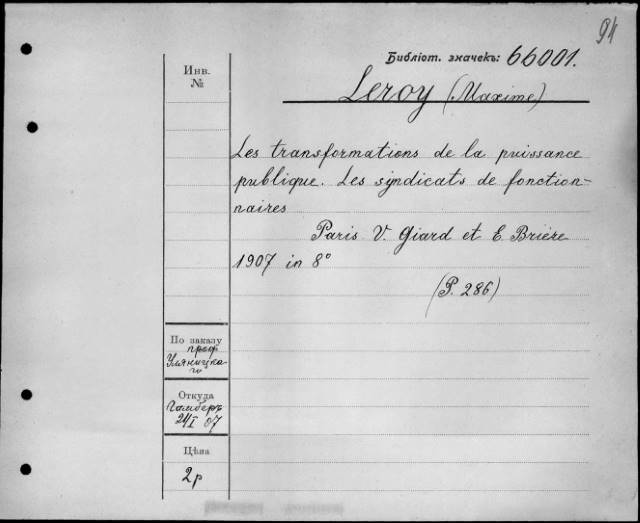 94
Библіот. значекъ: 66001.
Инв.
№
Leroy (Maxime)
Les transformations de la puissance
publique. Les syndicats de fonction-
naires
Paris V. Giard et E. Brière
1907 in 8°
(P. 286)
По заказу
проф
Уляницка-
го
Откуда
Гамберъ
24/I 07
Цѣна
2р